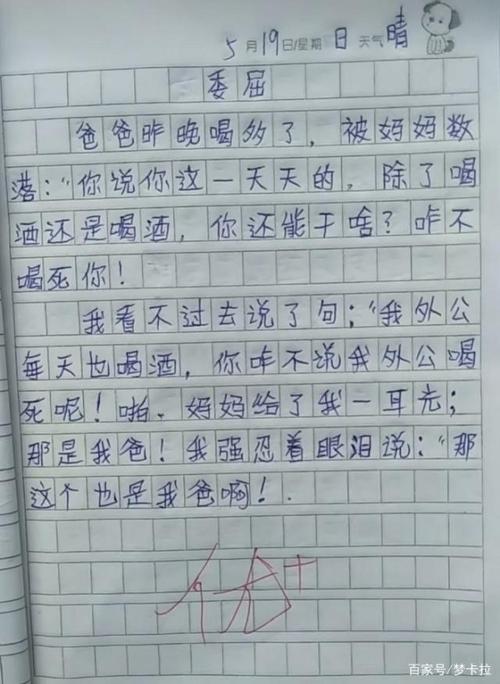 5月19日/星期日 天气晴
委屈
爸爸昨晚喝多了，被妈妈数
落:"你说你这一天天的，除了喝
酒还是喝酒，你还能干啥？咋不
喝死你！
我看不过去说了句;"我外公
每天也喝酒，你咋不说我外公喝
死呢！啪、妈妈给了我一耳光;
那是我爸！我强忍着眼泪说:"那
这个也是我爸啊！.
优+
百家号/梦卡拉